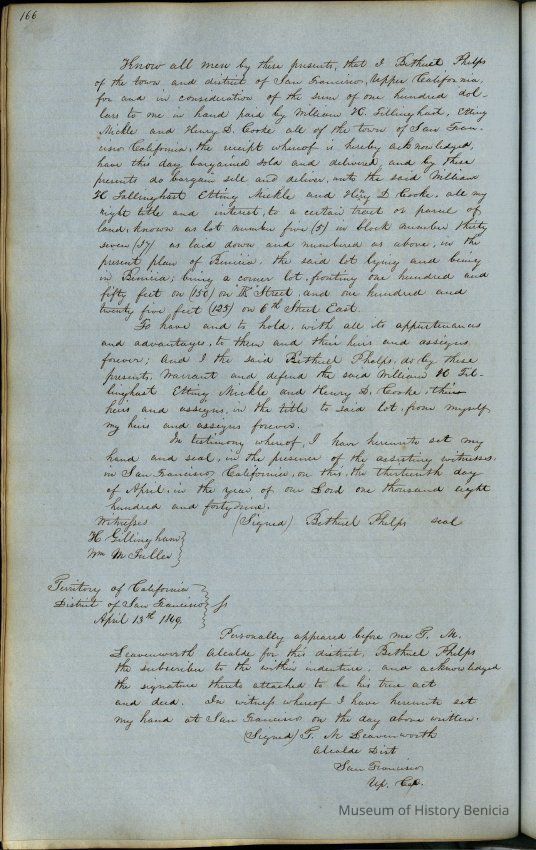 166
Know all men by these presents, that I Bethuel Phelps
of the town and district of San Francisco, Upper California,
for and in consideration of the sum of one hundred dol-
lars to me in hand paid by William H. Tillinghast, Etting
Mickle and Henry D. Cooke all of the town of San Fran-
cisco California, the receipt whereof is hereby acknowledged,
have this day bargained sold and delivered, and by these
presents do bargain sell and deliver, unto the said William
H Tillinghast Etting Mickle and Henry D Cooke, all my
right title and interest, to a certain tract or parcel of
land, known as lot number five (5) in block number thirty
seven (37) as laid down and numbered as above, in the
present plan of Benicia, the said lot lying and being
in Benicia; being a corner lot, fronting one hundred and
fifty feet on (150) on "K" Street, and one hundred and
twenty five feet (125) on 6th Street East.
To have and to hold, with all its appurtenances
and advantages, to them and their heirs and assigns
forever; And I the said Bethuel Phelps, do by these
presents, warrant and defend the said William H Til-
linghast Etting Mickle and Henry D. Cooke, their
heirs and assigns, in the title to said lot, from myself,
my heirs and assigns forever.
In testimony whereof, I have hereunto set my
hand and seal, in the presence of the assisting witnesses,
in San Francisco California, on this, the thirteenth day
of April, in the year of our Lord one thousand eight
hundred and forty nine.
Witnesses (Signed) Bethuel Phelps seal
H Gillingham
Wm M Fuller
Territory of California
District of San Francisco ss
April 13th 1849.
Personally appeared before me T. M.
Leavenworth Alcalde for this district, Bethuel Phelps
the subscriber to the within indenture, and acknowledged
the signature thereto attached to be his true act
and deed. In witness whereof I have hereunto set
my hand at San Francisco on the day above written.
(Signed) T. M Leavenworth
Alcalde Dist
San Francisco
Up. Cal.
Museum of History Benicia